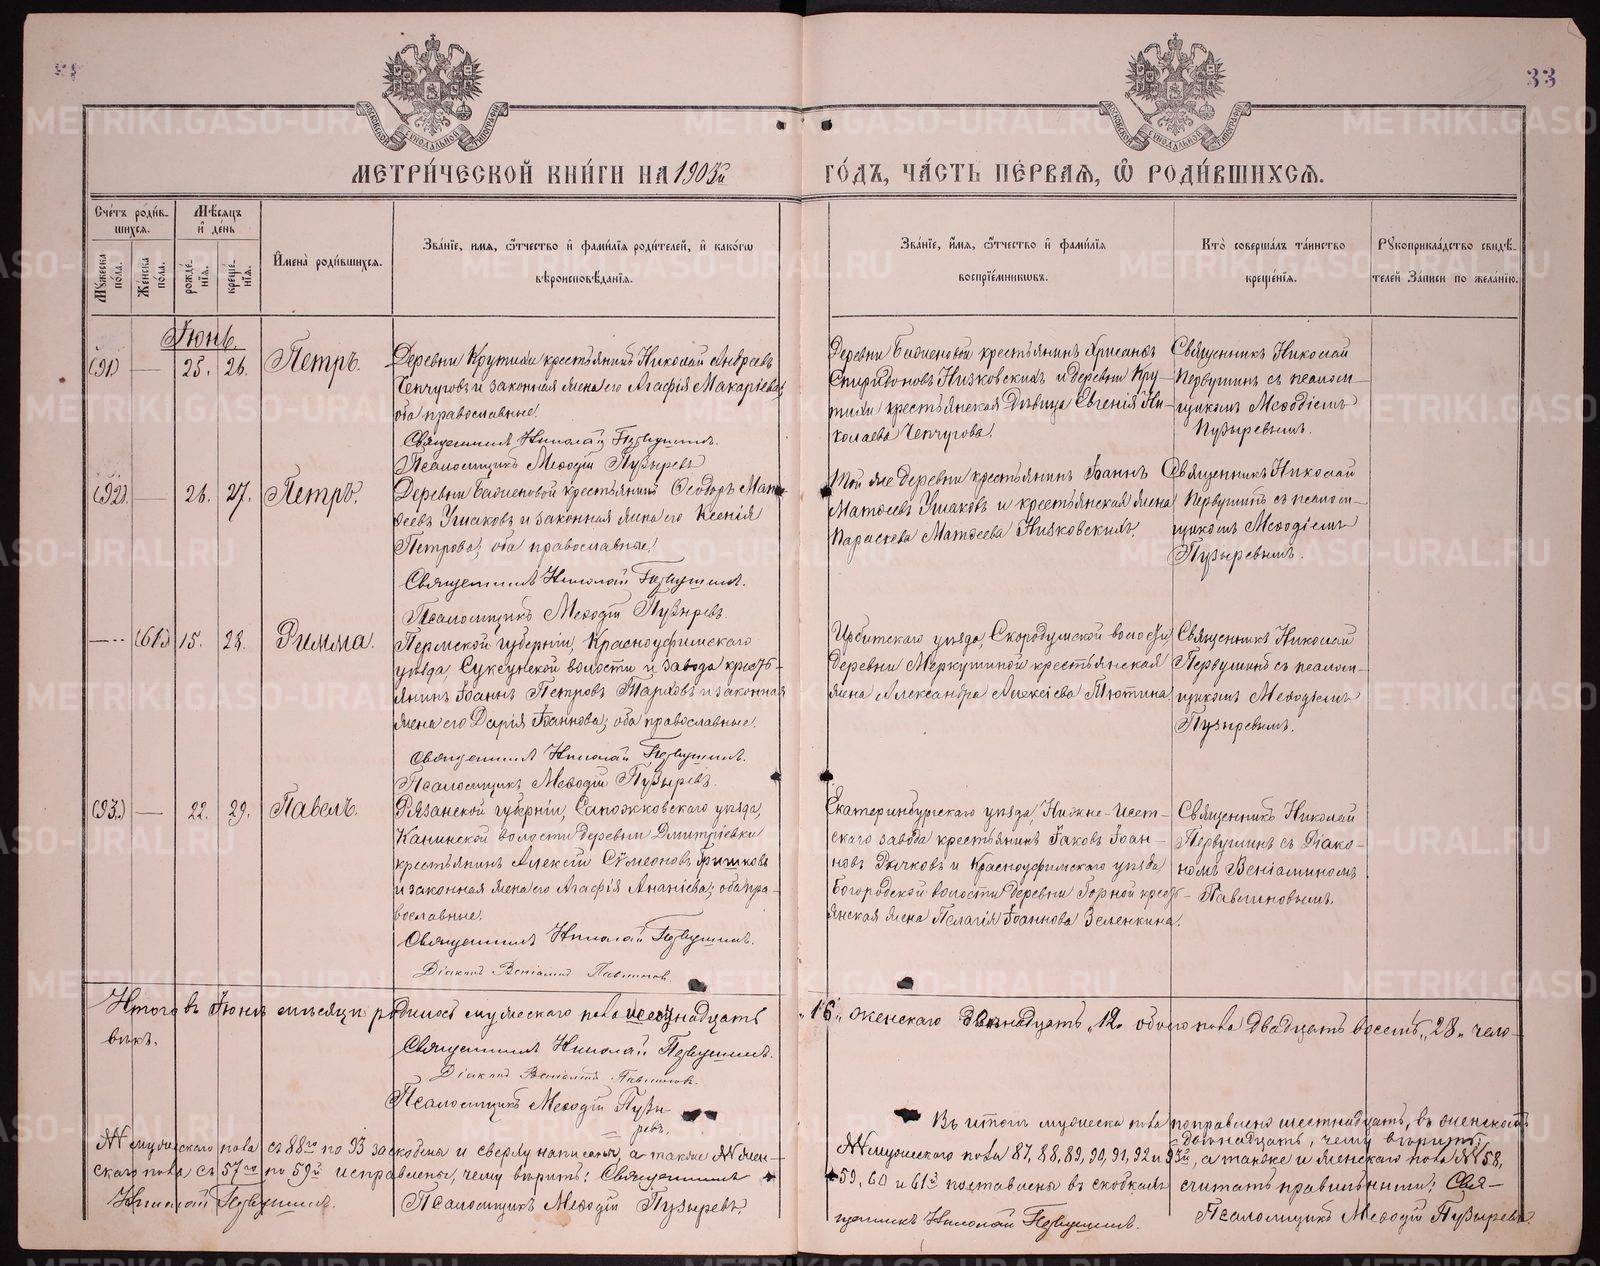 33
МЕТРИ́ЧЕСКОЙ КНИ́ГИ НА 1903й ГО́ДЪ, ЧА́СТЬ ПЕ́РВАЯ, Ѽ РОДИ́ВШИХСЯ.
Сче́тъ роди́в-
шихся.
Му́жеска пола.
Же́нска пола.
Мѣ́сяцъ и де́нь
рожде́нїя.
креще́нїя.
И́мена̀ роди́вшихся.
Зва́нїе, имя, ѻ҆́тчество и҆ фами́лїя роди́телей, и҆ како́гѡ
вѣроисповѣ́данїя.
Зва́нїе, и҆́мя, ѻ҆́тчество и҆ фами́лїя
воспрїе́мниковъ.
Кто̀ соверша́лъ та́инство
креще́нїя.
Рꙋкоприкла́дство свидѣ́-
телей за́писи по жела́нїю.
Іюнь.
(91) — 25. 26. Петръ.
Деревни Крутихи крестьянинъ Николай Андреевъ
Чепчуговъ и законная жена его Агафія Макаріева;
оба православные.
Священникъ Николай Первушинъ.
Псаломщикъ Меѳодій Пузыревъ
Деревни Бабиновой крестьянинъ Хрисанѳъ
Спиридоновъ Низковскихъ и деревни Кру-
тихи крестьянская дѣвица Евгенія Ни-
колаева Чепчугова.
Священникъ Николай
Первушинъ съ псалом-
щикомъ Меѳодіемъ
Пузыревымъ.
(92). — 26. 27. Петръ.
Деревни Бабиновой крестьянинъ Ѳеодоръ Мат-
ѳеевъ Ушаковъ и законная жена его Ксенія
Петрова; оба православные.
Священникъ Николай Первушинъ.
Псаломщикъ Меѳодій Пузыревъ.
Той же деревни крестьянинъ Іоаннъ
Матѳеевъ Ушаковъ и крестьянская жена
Параскева Матѳеева Низковскихъ.
Священникъ Николай
Первушинъ съ псалом-
щикомъ Меѳодіемъ
Пузыревымъ.
— (61) 15. 28. Римма.
Пермской губерніи, Красноуфимскаго
уѣзда, Суксунской волости и завода кресть-
янинъ Іоаннъ Петровъ и законная
жена его Дарія Іоаннова; оба православные.
Священникъ Николай Первушинъ.
Псаломщикъ Меѳодій Пузыревъ.
Ирбитскаго уѣзда, Скородумской волости,
деревни Меркушиной крестьянская
жена Александра Алексіева Тютина.
Священникъ Николай
Первушинъ съ псалом-
щикомъ Меѳодіемъ
Пузыревымъ.
(93.) — 22. 29. Павелъ.
Рязанской губерніи, Сапожковскаго уѣзда,
Канинской волости деревни Дмитріевки
крестьянинъ Алексій Сѵмеоновъ Гришковъ
и законная жена его Агафія Ананіева; оба пра-
вославные.
Священникъ Николай Первушинъ.
Діаконъ Веніаминъ Павлиновъ.
Екатеринбургскаго уѣзда, Нижне-Исет-
скаго завода крестьянинъ Іаковъ Іоан-
новъ Рычковъ и Красноуфимскаго уѣзда
Богородской волости деревни Горной кресть-
янская жена Пелагія Іоаннова Зеленкина.
Священникъ Николай
Первушинъ съ Діако-
номъ Веніаминомъ
Павлиновымъ.
Итого въ Іюнѣ мѣсяцѣ родилось мужескаго пола шестнадцать „16„ женскаго двѣнадцать „12„ обоего пола двадцать восемь „28„ чело-
вѣкъ.
Священникъ Николай Первушинъ.
Діаконъ Веніаминъ Павлиновъ.
Псаломщикъ Меѳодій Пузы-
ревъ.
№№ мужескаго пола съ 88го по 93 заскоблены и сверху написаны, а также №№ жен-
скаго пола съ 57го по 59й исправлены, чему вѣрить: Священникъ
Николай Первушинъ. Псаломщикъ Меѳодій Пузыревъ
Въ итогѣ мужеска пола поправлено шестнадцать, въ женскомъ
двѣнадцать, чему вѣрить;
№№ мужескаго пола 87, 88, 89, 90, 91, 92 и 93й, а также и женскаго пола №№ 58,
59, 60 и 61й поставлены въ скобкахъ считать правильными: Свя-
щенникъ Николай Первушинъ. Псаломщикъ Меѳодій Пузыревъ.